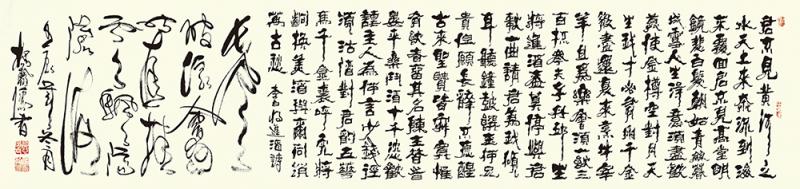 君不見黃河之
水天上來奔流到海
不復回君不見高堂明
鏡悲白髮朝如青絲暮
成雪人生得意須盡歡
莫使金樽空對月天
生我才必有用千金
散盡還復來烹羊宰
牛且為樂會須一飲三
百杯岑夫子丹丘生
將進酒盃莫停與君
歌一曲請君為我傾
耳聽鐘鼓饌玉何足
貴但願長醉不願醒
古來聖賢皆寂寞惟
有飲者留其名陳王昔時
宴平樂斗酒十千恣歡
謔主人為何言少錢徑
須沽對君酌五花
馬千金裘呼兒將
出換美酒與爾同消
萬古愁 李白將進酒詩
長風
破浪會有
時直掛
雲帆濟
滄海
壬辰冬月
楊書